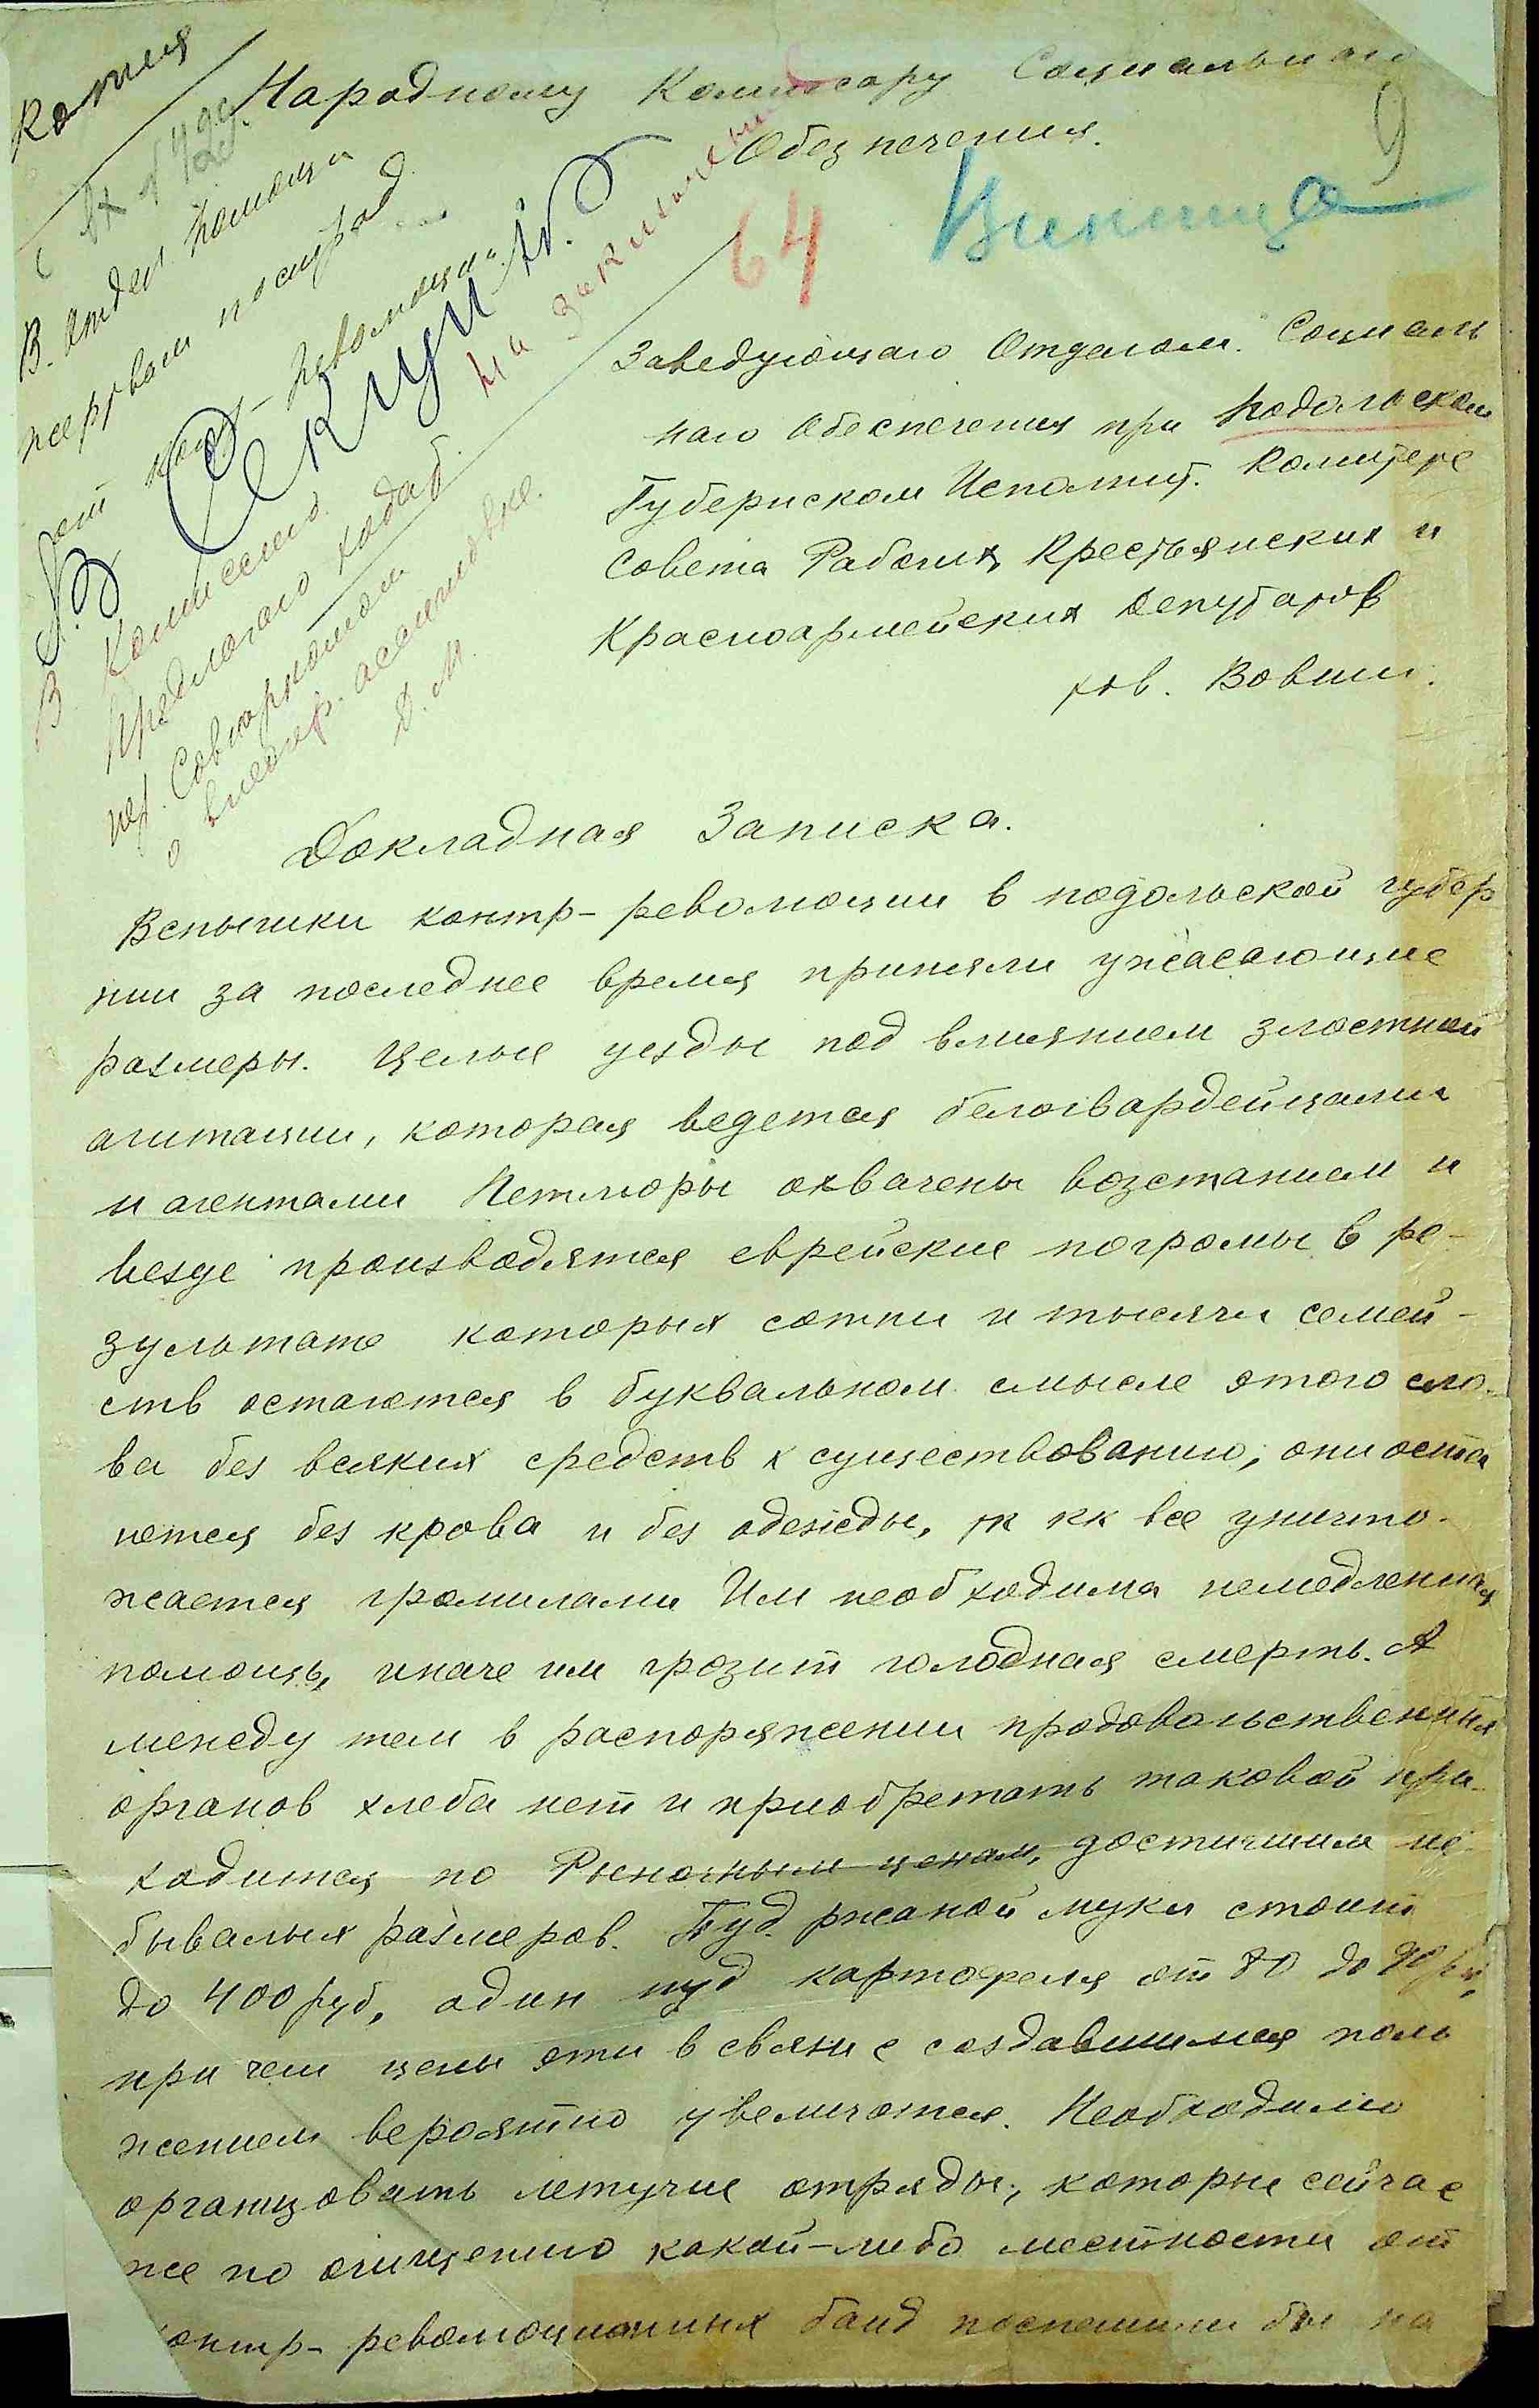 Копия
Народному Комиссару Социальнаго
Обезпечения.
9
64
Винница
В. Отдел помощи
жертвам пострад
от контр-революции
Секун
на заключение
В Комиссию.
Предлагаю ходат.
пер. Совнаркомом
о внеочер. ассигновке.
Д. М.
Заведующаго Отделом Социаль
наго Обеспечения при Подольском
Губернском Исполнит. Комитете
Совета Рабочих, Крестьянских и
Красноармейских Депутатов
тов. Вовши.
Докладная Записка.
Вспышки контр-революции в подольской губер
нии за последнее время приняли ужасающие
размеры. Целые уезды под влиянием злостной
агитации, которая ведется белогвардейцами
и агентами Петлюры охвачены возстанием и
везде производятся еврейские погромы в ре-
зультате которых сотни и тысячи семей-
ств остаются в буквальном смысле этого сло-
ва без всяких средств к существованию, они оста
ются без крова и без одежды, тк кк все уничто-
жается громилами Им необходима немедленная
помощь, иначе им грозит голодная смерть. А
между тем в распоряжении продовольственных
органов хлеба нет и приобретать таковой при-
ходится по Рыночным ценам, достигшим не-
бывалых размеров. Пуд ржаной муки стоит
до 400 руб, один пуд картофеля от 80 до 90 руб,
при чем цены эти в связи с создавшимся поло
жением вероятно увеличатся. Необходимо
организовать летучие отряды, которые сейчас
же по очищению какой-либо местности от
контр-революционных банд поспешили бы на